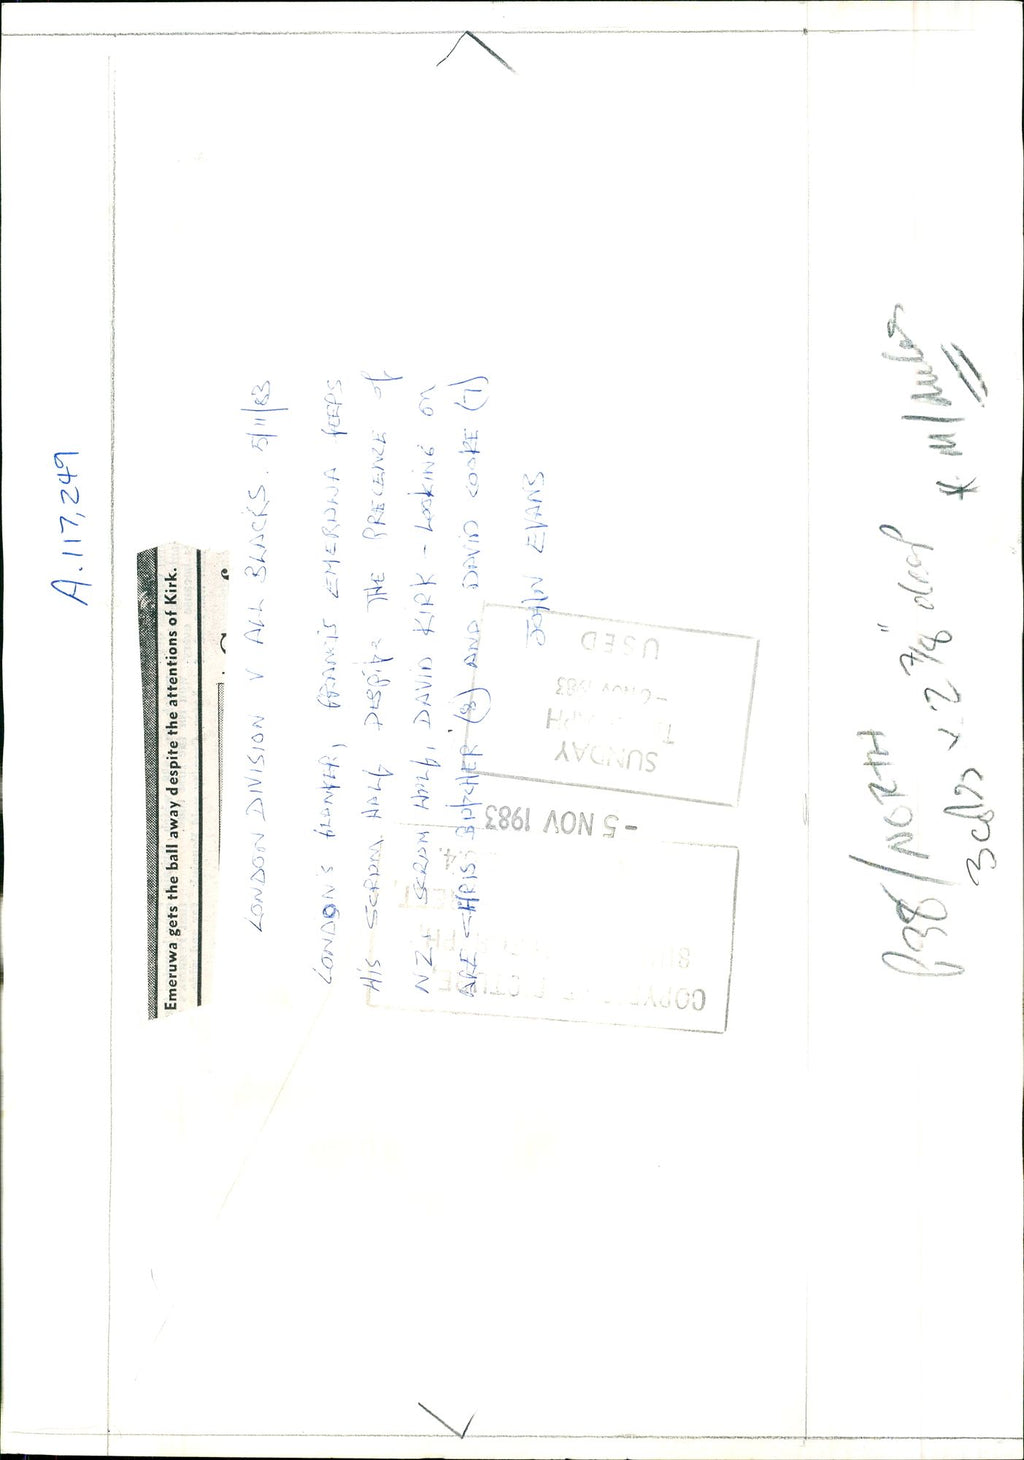 A.117,249
Emeruwa gets the ball away despite the attentions of Kirk.
LONDON DIVISION V ALL BLACKS. 5/11/83
LONDON'S FLANKER, FRANCIS EMERUWA KEEPS
HIS SCRUM HALF DESPITE THE PRECENCE OF
NZ'S SCRUM HALF, DAVID KIRK - LOOKING ON
ARE CHRIS BUTCHER (8) AND DAVID COOKE (7)
JOHN EVANS
SUNDAY
-6 NOV 1983
USED
-5 NOV 1983
P38/NORTH
3 cols x 2 7/8" deep